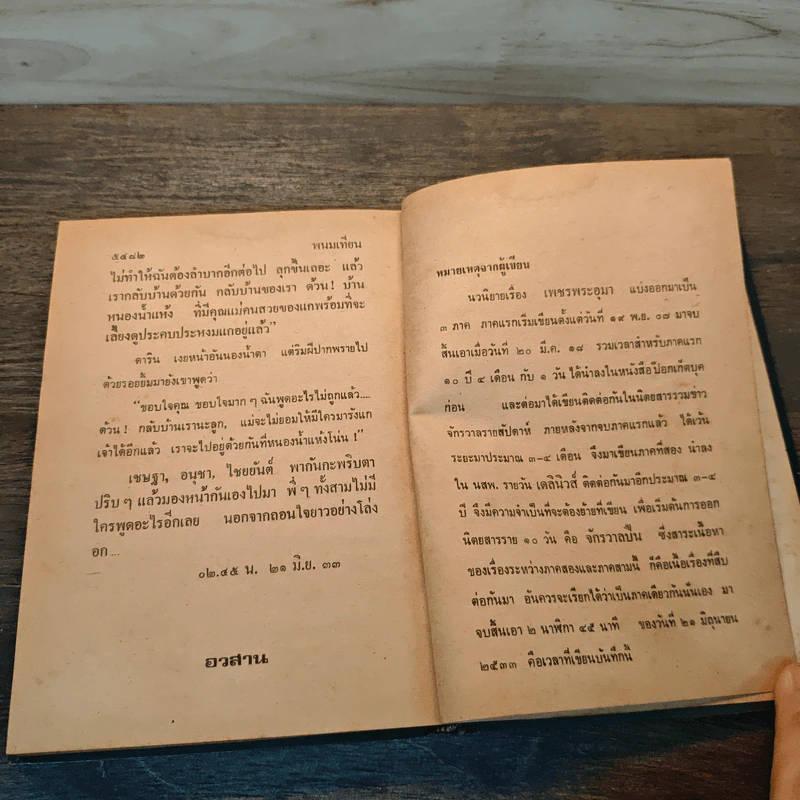 ๕๔๘๒
พนมเทียน
ไม่ทำให้ฉันต้องลำบากอีกต่อไป ลุกขึ้นเถอะ แล้ว
เรากลับบ้านด้วยกัน กลับบ้านของเรา ด้วน! บ้าน
หนองน้ำแห้ง ที่มีคุณแม่คนสวยของแกพร้อมที่จะ
เลี้ยงดูประคบประหงมแกอยู่แล้ว”
ดาริน เงยหน้าอันนองน้ำตา แต่ริมฝีปากพรายไป
ด้วยรอยยิ้มมายังเขาพูดว่า
“ขอบใจคุณ ขอบใจมาก ๆ ฉันพูดอะไรไม่ถูกแล้ว....
ด้วน! กลับบ้านเรานะลูก, แม่จะไม่ยอมให้มีใครมารังแก
เจ้าได้อีกแล้ว เราจะไปอยู่ด้วยกันที่หนองน้ำแห้งโน่น!”
เชษฐา, อนุชา, ไชยยันต์ พากันกะพริบตา
ปริบ ๆ แล้วมองหน้ากันเองไปมา พี่ ๆ ทั้งสามไม่มี
ใครพูดอะไรอีกเลย นอกจากถอนใจยาวอย่างโล่ง
อก ...
๐๒.๔๕ น. ๒๑ มิ.ย. ๓๓
อวสาน
หมายเหตุจากผู้เขียน
นวนิยายเรื่อง เพชรพระอุมา แบ่งออกมาเป็น
๓ ภาค ภาคแรกเริ่มเขียนตั้งแต่วันที่ ๑๙ พ.ย. ๐๗ มาจบ
สิ้นเอาเมื่อวันที่ ๒๐ มี.ค. ๑๘ รวมเวลาสำหรับภาคแรก
๑๐ ปี ๔ เดือน กับ ๑ วัน ได้นำลงในหนังสือป๊อกเก็ตบุค
ก่อน และต่อมาได้เขียนติดต่อกันในนิตยสารรวมข่าว
จักรวาลรายสัปดาห์ ภายหลังจากจบภาคแรกแล้ว ได้เว้น
ระยะมาประมาณ ๓-๔ เดือน จึงมาเขียนภาคที่สอง นำลง
ใน นสพ. รายวัน เดลินิวส์ ติดต่อกันมาอีกประมาณ ๓-๔
ปี จึงมีความจำเป็นที่จะต้องย้ายที่เขียน เพื่อเริ่มต้นการออก
นิตยสารราย ๑๐ วัน คือ จักรวาลปืน ซึ่งสาระเนื้อหา
ของเรื่องระหว่างภาคสองและภาคสามนี้ ก็คือเนื้อเรื่องที่สืบ
ต่อกันมา อันควรจะเรียกได้ว่าเป็นภาคเดียวกันนั่นเอง มา
จบสิ้นเอา ๒ นาฬิกา ๔๕ นาที ของวันที่ ๒๑ มิถุนายน
๒๕๓๓ คือเวลาที่เขียนบันทึกนี้